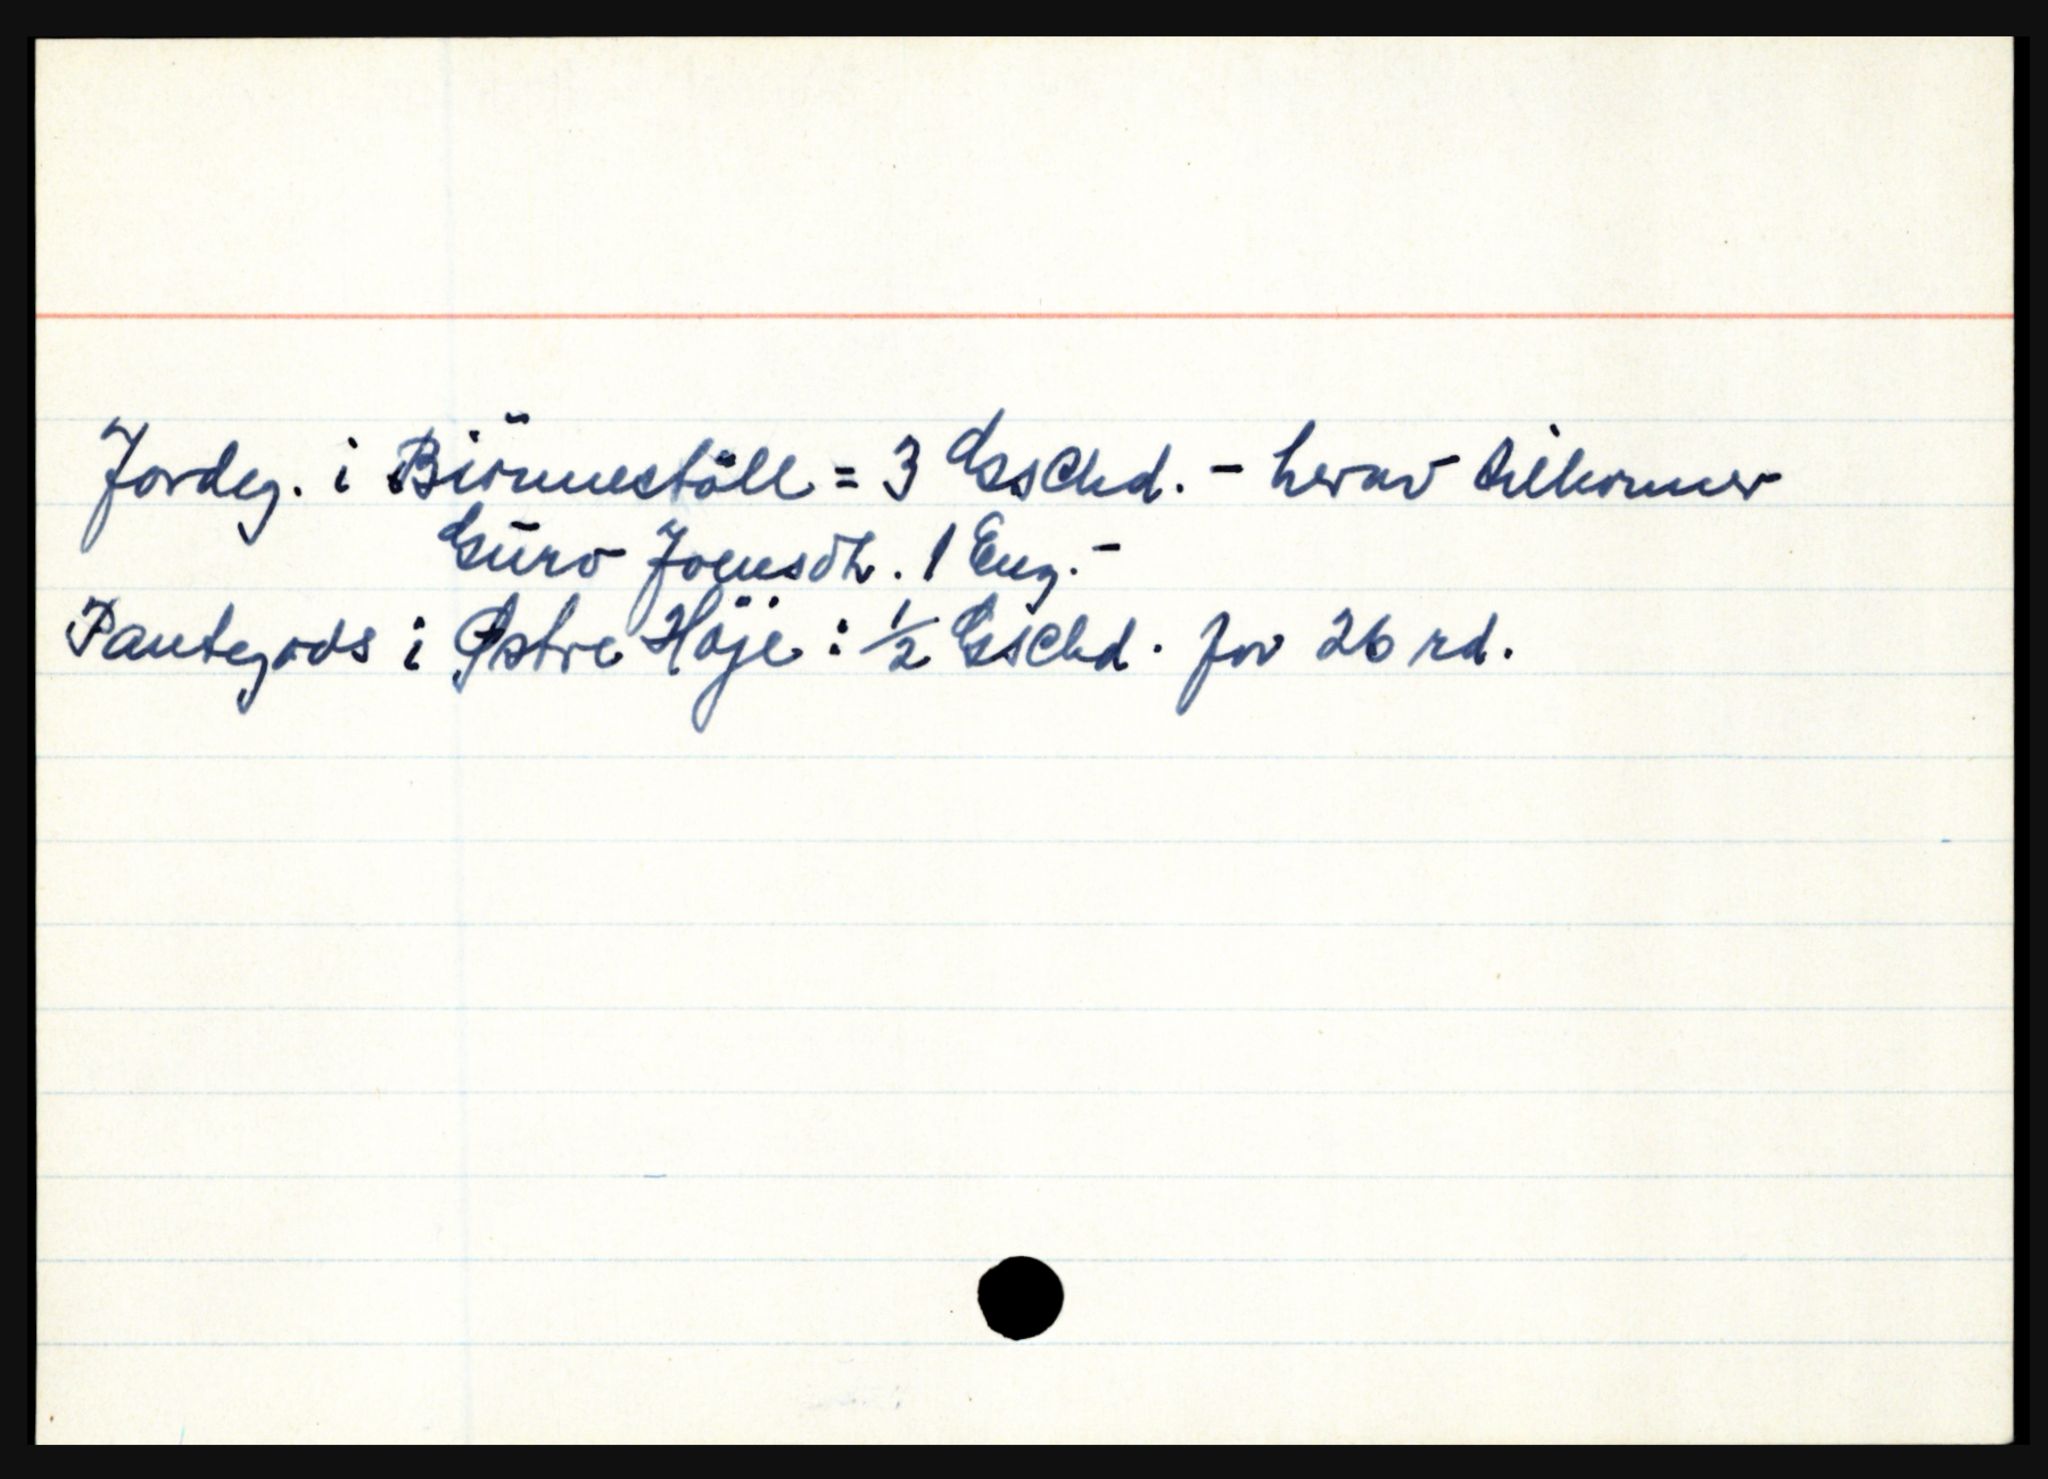 Jordeg. i Biönneställ = 3 Gschd. - herav tilkommer
Guro Joensdtr. 1 Eng. -
Pantegods i Østre Höje : ½ Gschd. for 26 rd.